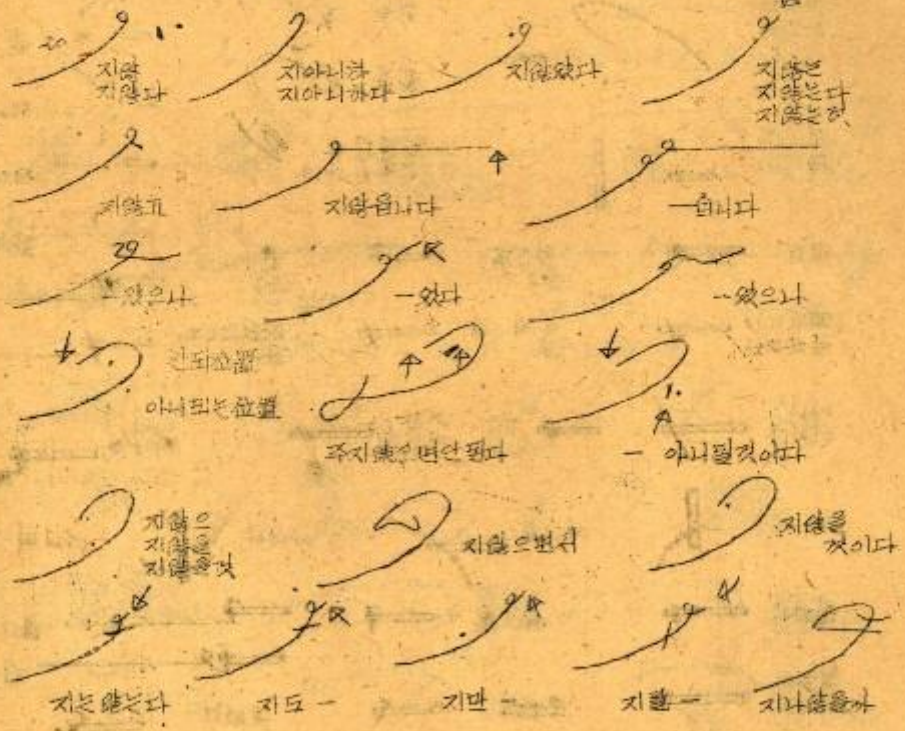 지않
지않다
지아니하
지아니하다
지않았다
지않는
지않는다
지않는것
지않고
지않습니다
—습니다
—았으나
—았다
—았으나
안되
아니되는位置
주지않으면안된다
— 아니될것이다
지않으
지않을
지않을것
지않으면서
지않을
것이다
지는않는다
지도 —
지만
지를 —
지나않을까